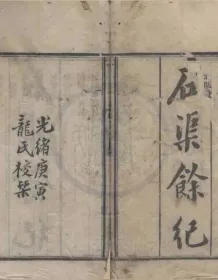 石渠餘紀
光緒庚寅
龍氏校栞